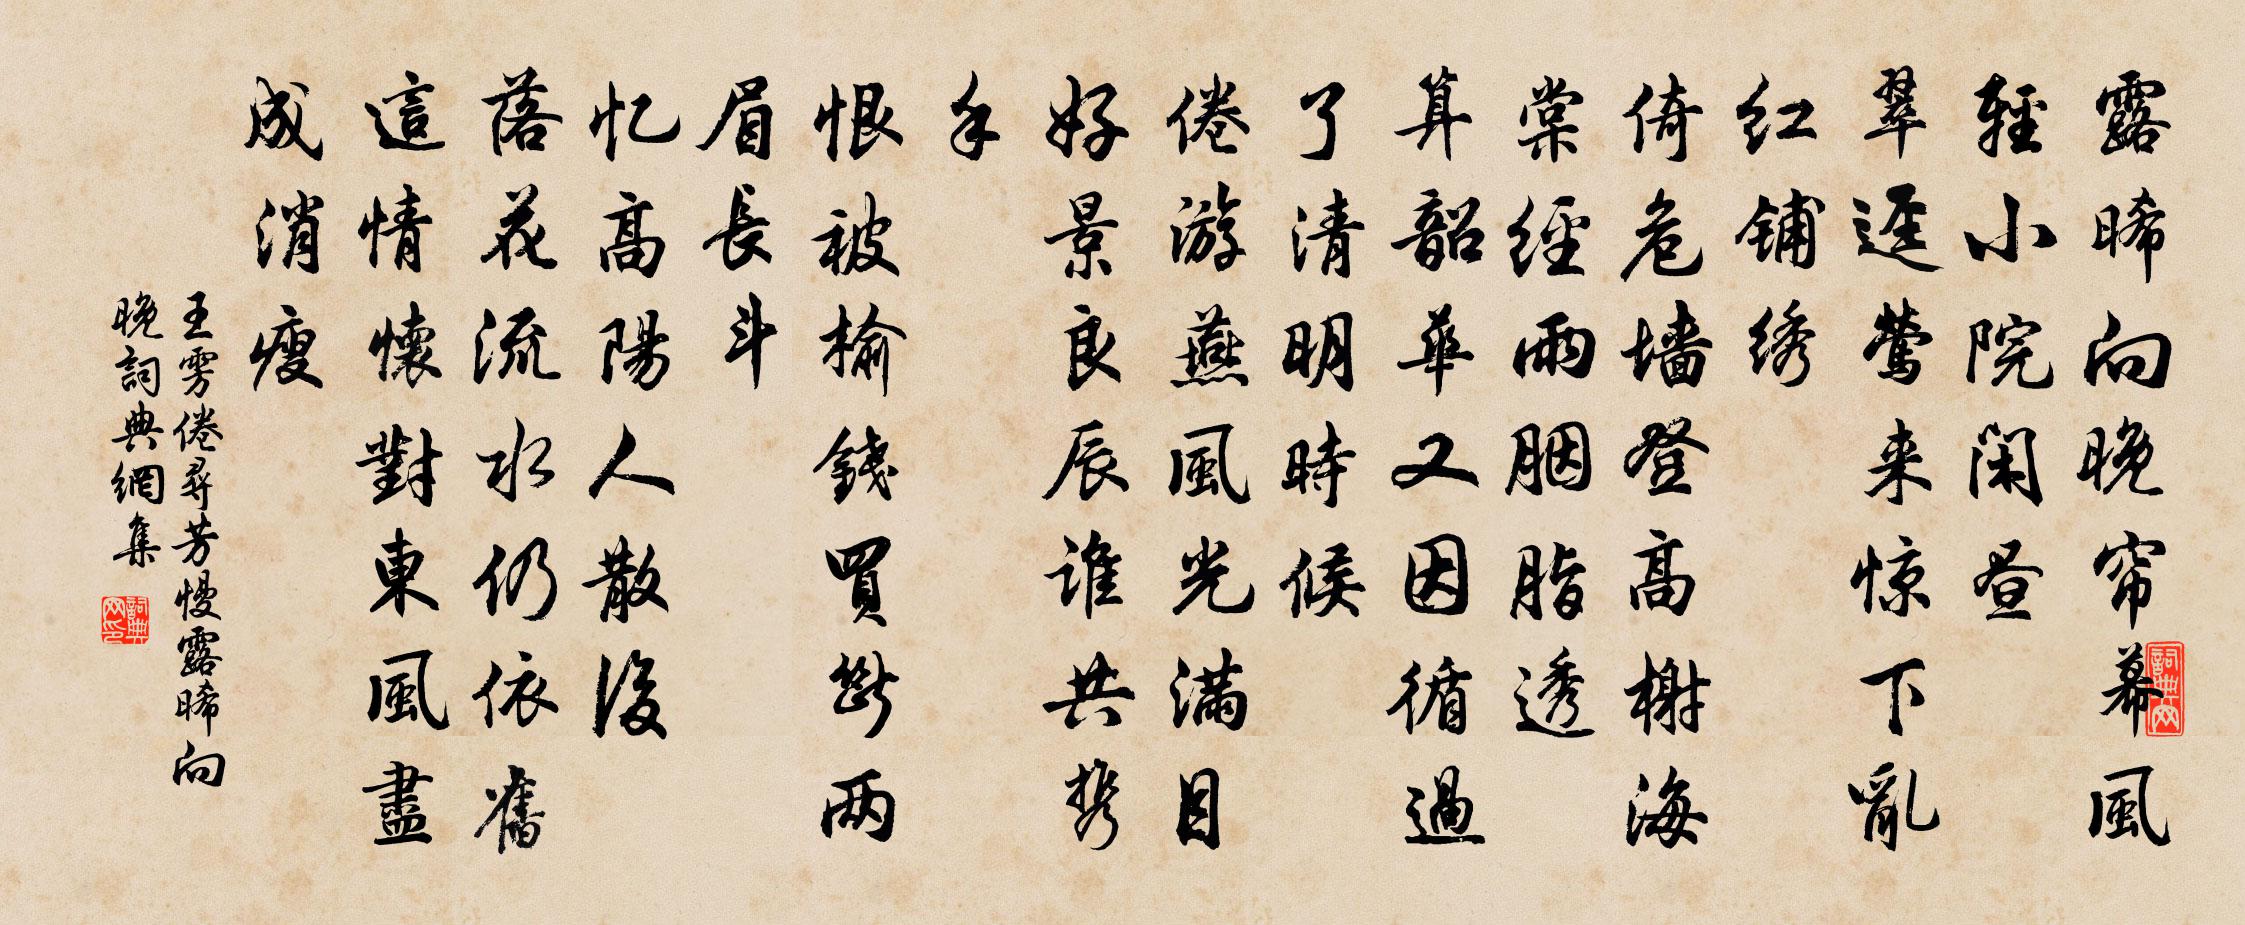 露晞向晚帘幕風
輕小院閑昼
翠逕鶯来惊下亂
红铺绣
倚危墙登高榭海
棠經雨胭脂透
算韶華又因循過
了清明時候
倦游燕風光满目
好景良辰谁共携
手
恨被榆錢買斷两
眉長斗
忆高陽人散後
落花流水仍依舊
這情懷對東風盡
成消瘦
王雱倦尋芳慢露晞向
晚詞典網集
詞典网
詞典网印